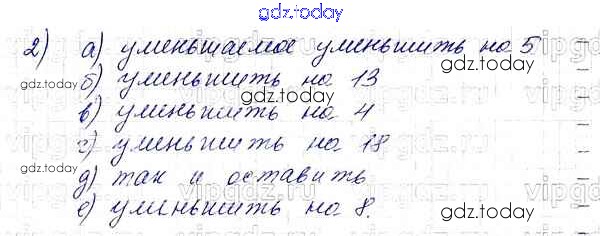 gdz.today
2) а) уменьшаемое уменьшить на 5
gdz.today
б) уменьшить на 13
gdz.today
в) уменьшить на 4
г) уменьшить на 18
gdz.today
gdz.today
д) так и оставить
е) уменьшить на 8.
gdz.today